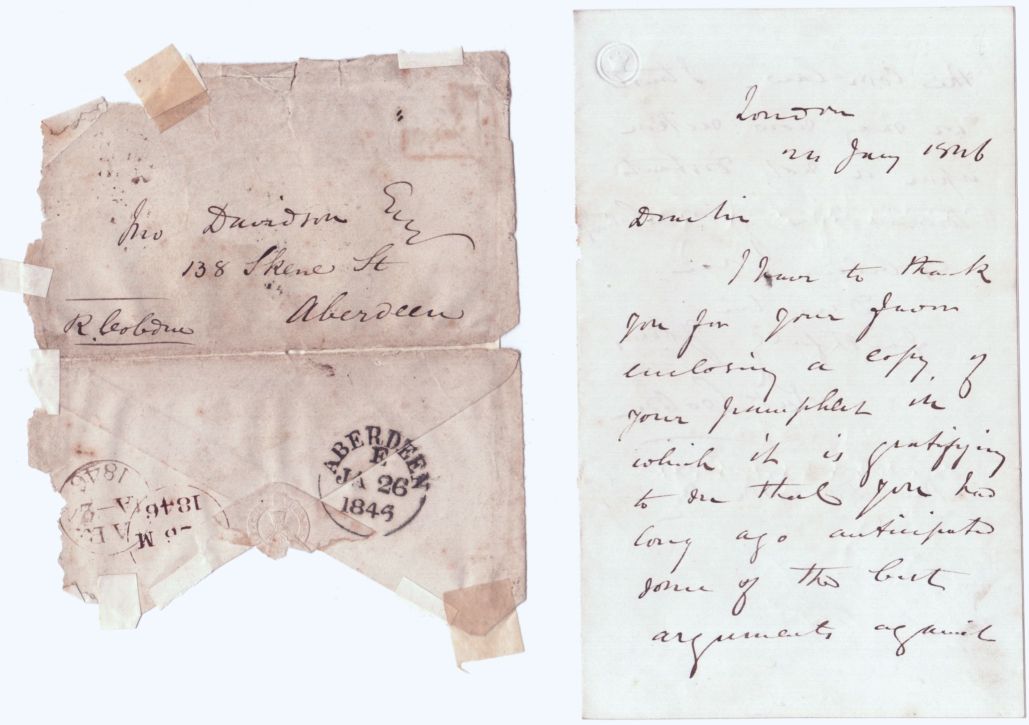 Jno Davidson Esq
138 Skene St
Aberdeen
R. Cobden
ABERDEEN
E
JA 26
1846
1846
London
24 Jany 1846
Dear Sir
I have to thank
you for your favor
enclosing a copy of
your pamphlet in
which it is gratifying
to see that you had
long ago anticipated
some of the best
arguments against